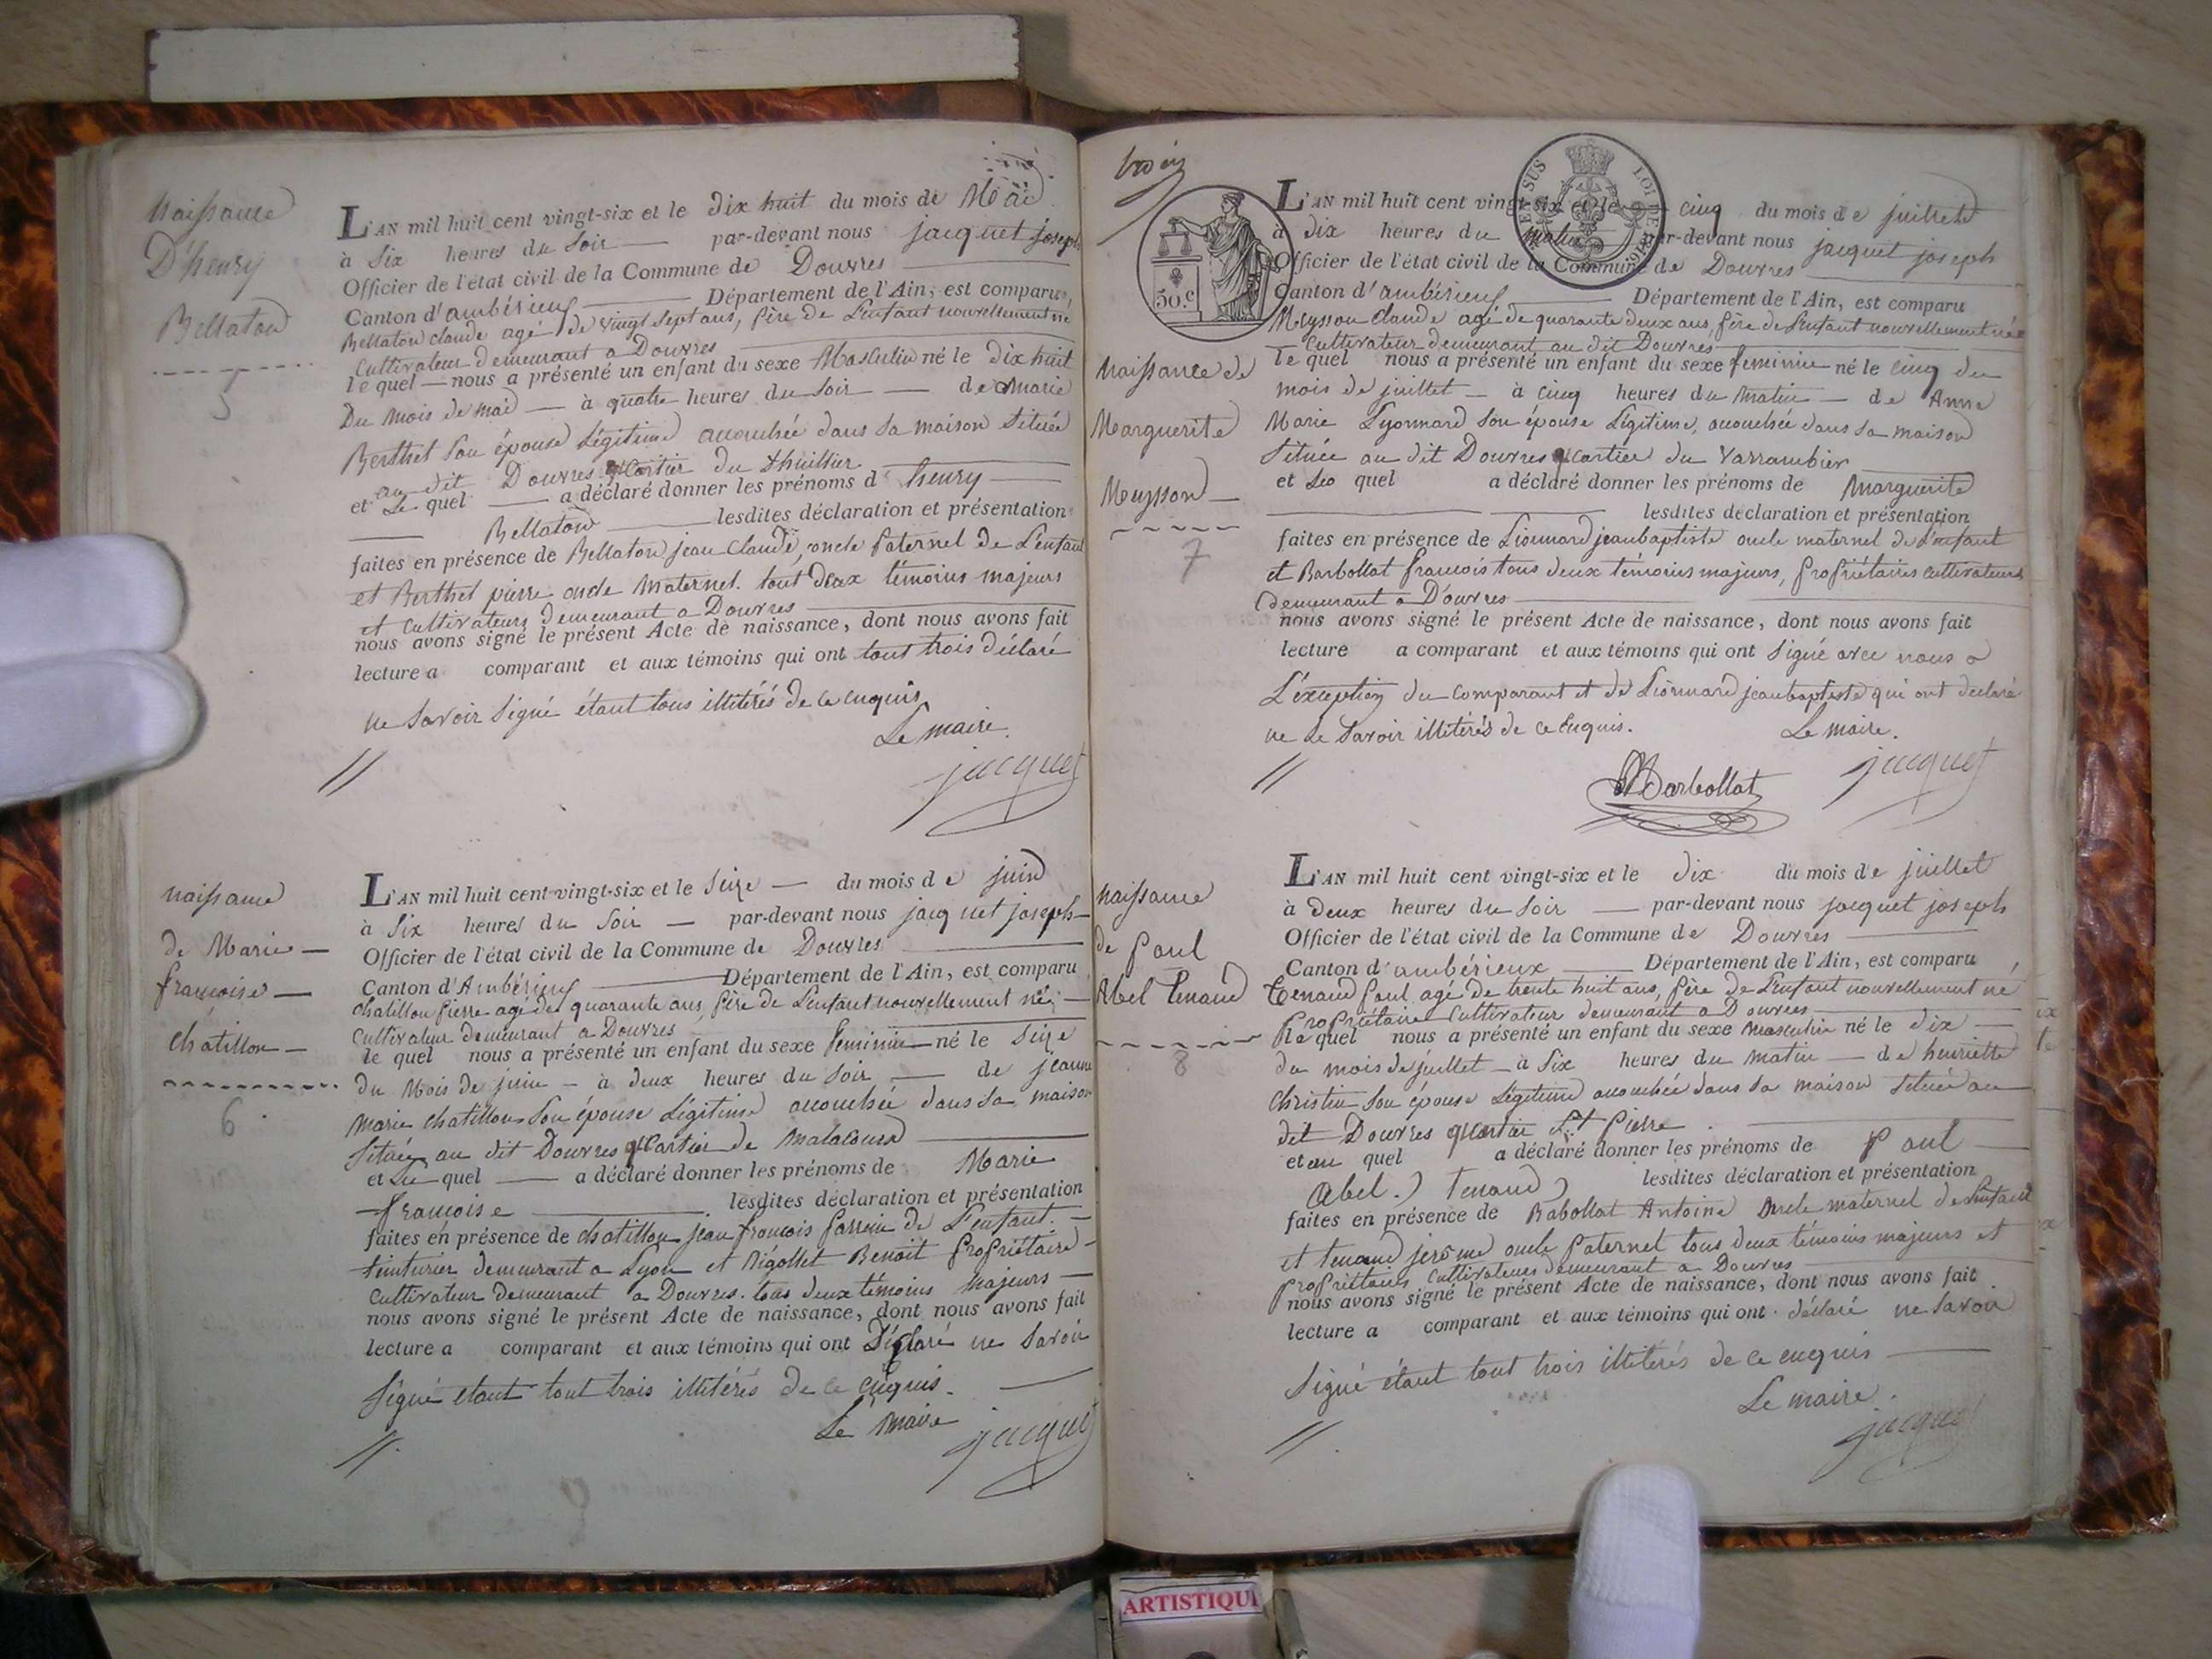 Naissance
D'henry
Bellaton
5
L'AN mil huit cent vingt-six et le dix huit du mois de Mai
à Six heures du Soir par-devant nous jacquet joseph
Officier de l'état civil de la Commune de Douvres
Canton d'ambérieux Département de l'Ain, est comparu,
Bellaton claude agé de vingt Sept ans, père de L'enfant nouvellement né
Cultivateur demeurant a Douvres
le quel nous a présenté un enfant du sexe Masculin né le dix huit
Du mois de mai à quatre heures du Soir de Marie
Berthet Son épouse Légitime accouchée dans Sa maison Située
au dit Douvres quartier du thuillier
et Le quel a déclaré donner les prénoms d' henry
Bellaton lesdites déclaration et présentation
faites en présence de Bellaton jean Claude, oncle paternel de L'enfant
et Berthet pierre oncle Maternel. tout deux témoins majeurs
et Cultivateurs demeurant a Douvres
nous avons signé le présent Acte de naissance, dont nous avons fait
lecture a comparant et aux témoins qui ont tout trois déclaré
ne Savoir Signé étant tous illitérés de ce enquis
Le maire.
jacquet
naissance
de Marie
françoise
chatillon
6.
L'AN mil huit cent vingt-six et le Seize du mois de juin
à Six heures du Soir par-devant nous jacquet joseph
Officier de l'état civil de la Commune de Douvres
Canton d'Ambérieux Département de l'Ain, est comparu
chatillon pierre agé de quarante ans, père de L'enfant nouvellement né
Cultivateur demeurant a Douvres
le quel nous a présenté un enfant du sexe feminin né le Seize
du Mois de juin à deux heures du Soir de jeanne
Marie chatillon Son épouse Légitime accouchée dans Sa maison
Située au dit Douvres quartier de Malacourd
et Le quel a déclaré donner les prénoms de Marie
françoise lesdites déclaration et présentation
faites en présence de chatillon jean françois parrein de L'enfant.
teinturier demeurant a Lyon et Rigollet Benoit propriétaire
Cultivateur demeurant a Douvres. tous deux témoins Majeurs
nous avons signé le présent Acte de naissance, dont nous avons fait
lecture a comparant et aux témoins qui ont Déclaré ne Savoir
Signé etant tout trois illitérés de ce enquis.
Le Maire
jacquet
trois
30.c
SUS LOI DE
Naissance de
Marguerite
Meysson
7
L'AN mil huit cent vingt-six et le cinq du mois de juillet
à dix heures du matin par-devant nous jacquet joseph
Officier de l'état civil de la Commune de Douvres
Canton d'ambérieux Département de l'Ain, est comparu
Meysson Claude agé de quarante deux ans, père de L'enfant nouvellement née
Cultivateur demeurant au dit Douvres
le quel nous a présenté un enfant du sexe feminin né le cinq du
mois de juillet à cinq heures du Matin de Anne
Marie Lyonnard Son épouse Légitime, accouchée dans Sa maison
Située au dit Douvres quartier du Varrambier
et Le quel a déclaré donner les prénoms de Marguerite
lesdites déclaration et présentation
faites en présence de Lionnard jean baptiste oncle maternel de L'enfant
et Barbollat françois tous deux témoins majeurs, propriétaires cultivateurs
demeurant a Douvres
nous avons signé le présent Acte de naissance, dont nous avons fait
lecture a comparant et aux témoins qui ont Signé avec nous a
L'exception du Comparant et de Lionnard jean baptiste qui ont déclaré
ne Le Savoir illitérés de ce Enquis.
Le maire.
Barbollat
jacquet
naissance
de paul
Abel Tenand
8
L'AN mil huit cent vingt-six et le dix du mois de juillet
à deux heures du Soir par-devant nous jacquet joseph
Officier de l'état civil de la Commune de Douvres
Canton d'ambérieux Département de l'Ain, est comparu,
Tenand paul agé de trente huit ans, père de L'enfant nouvellement né
propriétaire Cultivateur demeurant a Douvres
le quel nous a présenté un enfant du sexe Masculin né le dix
du mois de juillet à Six heures du Matin de henriette
Christin Son épouse Légitime accouchée dans Sa maison Située au
dit Douvres quartier St Pierre
et au quel a déclaré donner les prénoms de Paul
Abel Tenand lesdites déclaration et présentation
faites en présence de Babollat Antoine Oncle maternel de L'enfant
et tenand jerôme oncle paternel tous deux témoins majeurs et
propriétaires Cultivateurs demeurant a Douvres
nous avons signé le présent Acte de naissance, dont nous avons fait
lecture a comparant et aux témoins qui ont déclaré ne Savoir
Signé étant tout trois illitérés de ce enquis
Le maire.
jacquet
ARTISTIQU